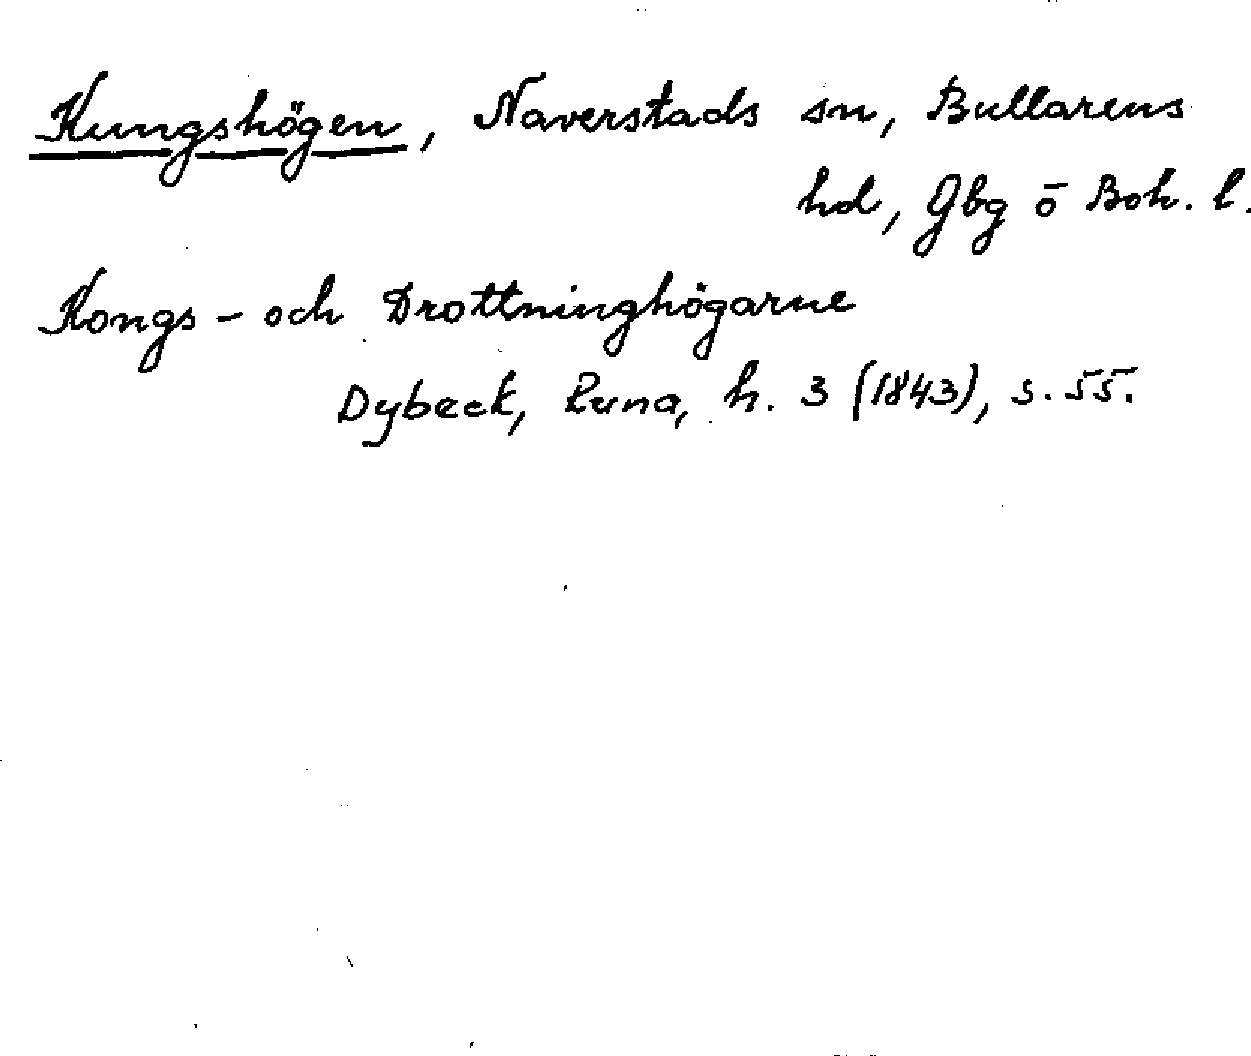 Kungshögen, Naverstads sn, Bullarens
hd, Gbg ō Boh. l.
Kongs- och Drottninghögarne
Dybeck, Runa, h. 3 (1843), s. 55.